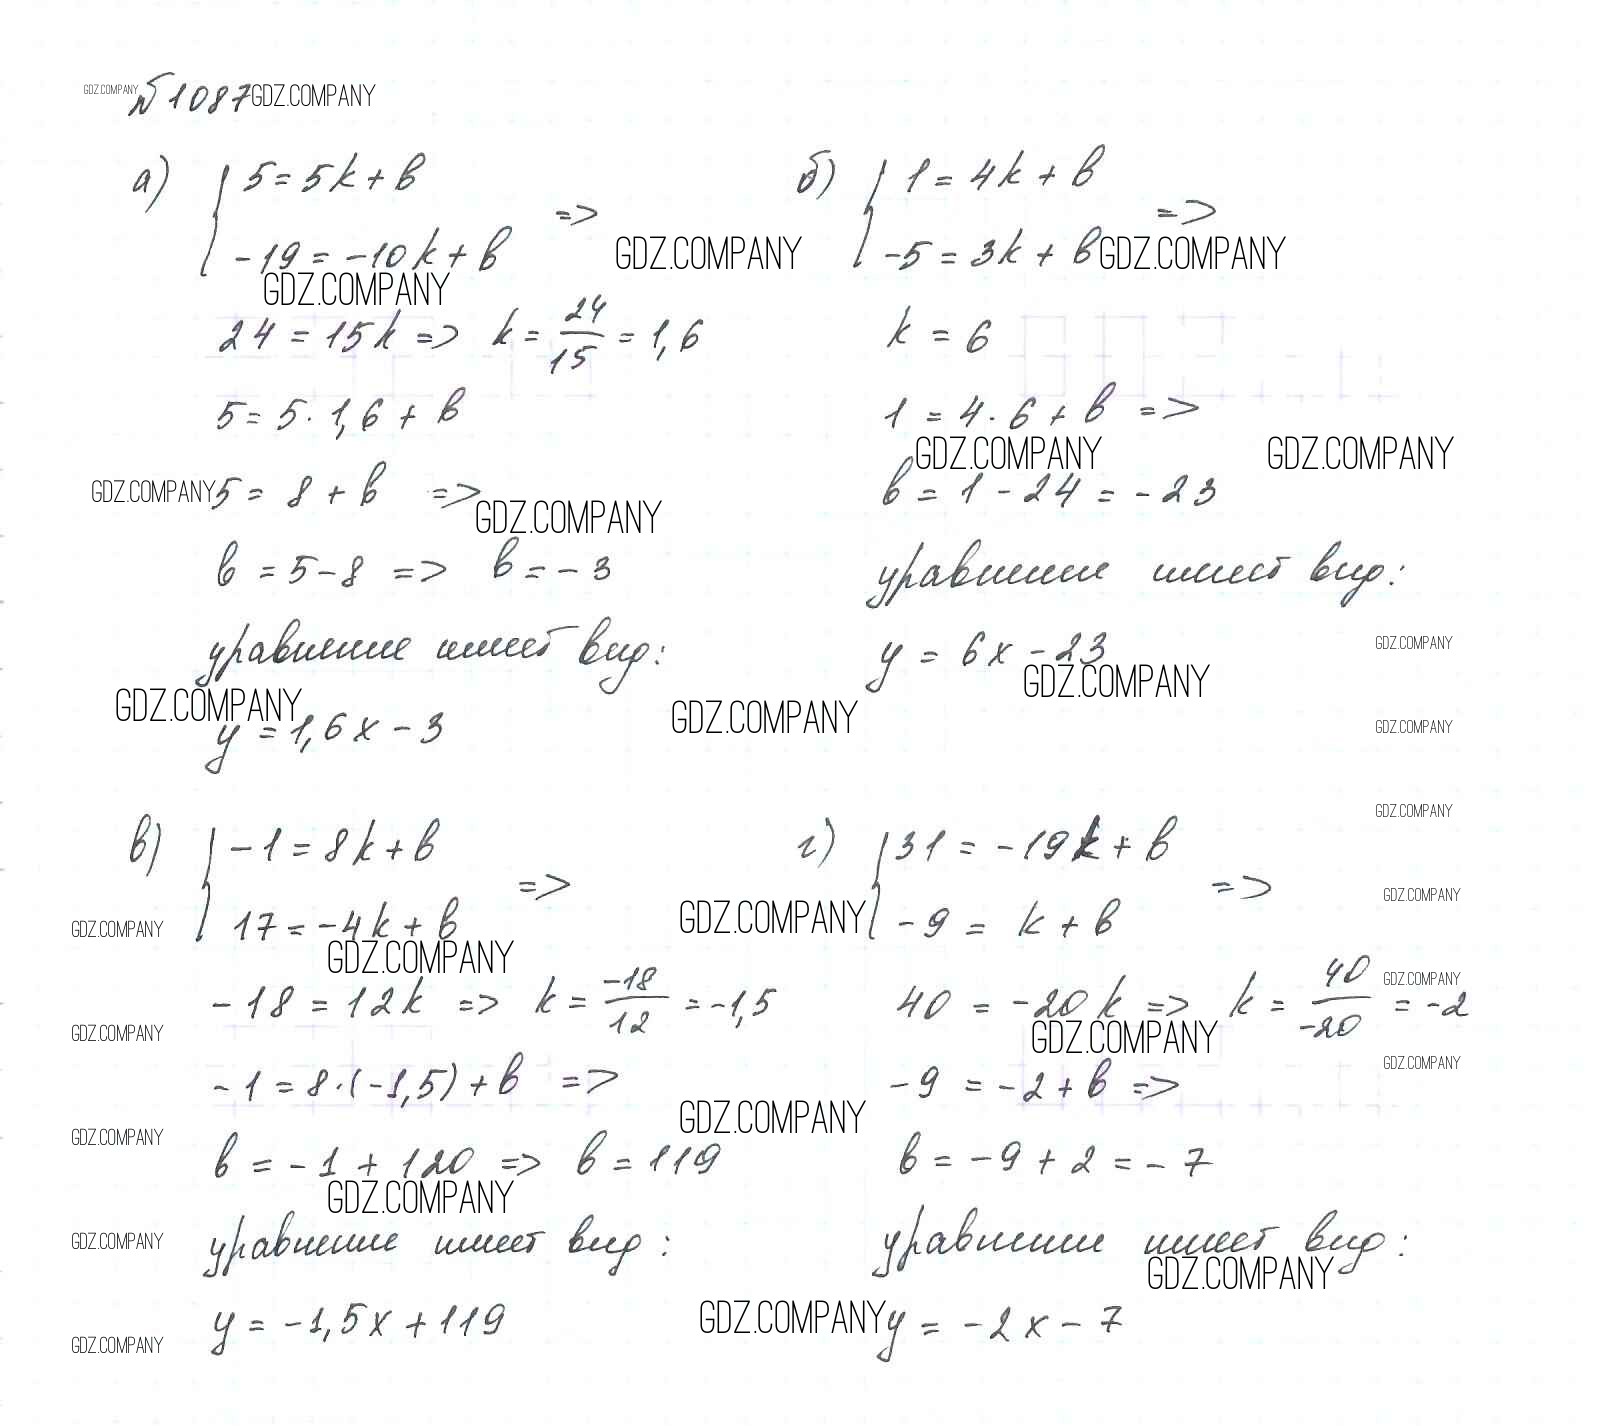 GDZ.COMPANY № 1087 GDZ.COMPANY
а) { 5 = 5k + b
-19 = -10k + b =>
GDZ.COMPANY
GDZ.COMPANY
24 = 15k => k = 24/15 = 1,6
5 = 5 · 1,6 + b
GDZ.COMPANY 5 = 8 + b =>
GDZ.COMPANY
b = 5 - 8 => b = -3
уравнение имеет вид:
GDZ.COMPANY
GDZ.COMPANY
y = 1,6x - 3
б) { 1 = 4k + b
-5 = 3k + b =>
GDZ.COMPANY
k = 6
1 = 4 · 6 + b =>
GDZ.COMPANY GDZ.COMPANY
b = 1 - 24 = -23
уравнение имеет вид:
GDZ.COMPANY
y = 6x - 23
GDZ.COMPANY
GDZ.COMPANY
GDZ.COMPANY
в) { -1 = 8k + b
17 = -4k + b =>
GDZ.COMPANY
GDZ.COMPANY
-18 = 12k => k = -18/12 = -1,5
GDZ.COMPANY
-1 = 8 · (-1,5) + b =>
GDZ.COMPANY
GDZ.COMPANY
b = -1 + 120 => b = 119
GDZ.COMPANY
GDZ.COMPANY
уравнение имеет вид:
y = -1,5x + 119
GDZ.COMPANY
г) { 31 = -19k + b
-9 = k + b =>
GDZ.COMPANY
GDZ.COMPANY
GDZ.COMPANY
40 = -20k => k = 40/-20 = -2
GDZ.COMPANY
GDZ.COMPANY
-9 = -2 + b =>
b = -9 + 2 = -7
уравнение имеет вид:
GDZ.COMPANY
GDZ.COMPANY y = -2x - 7